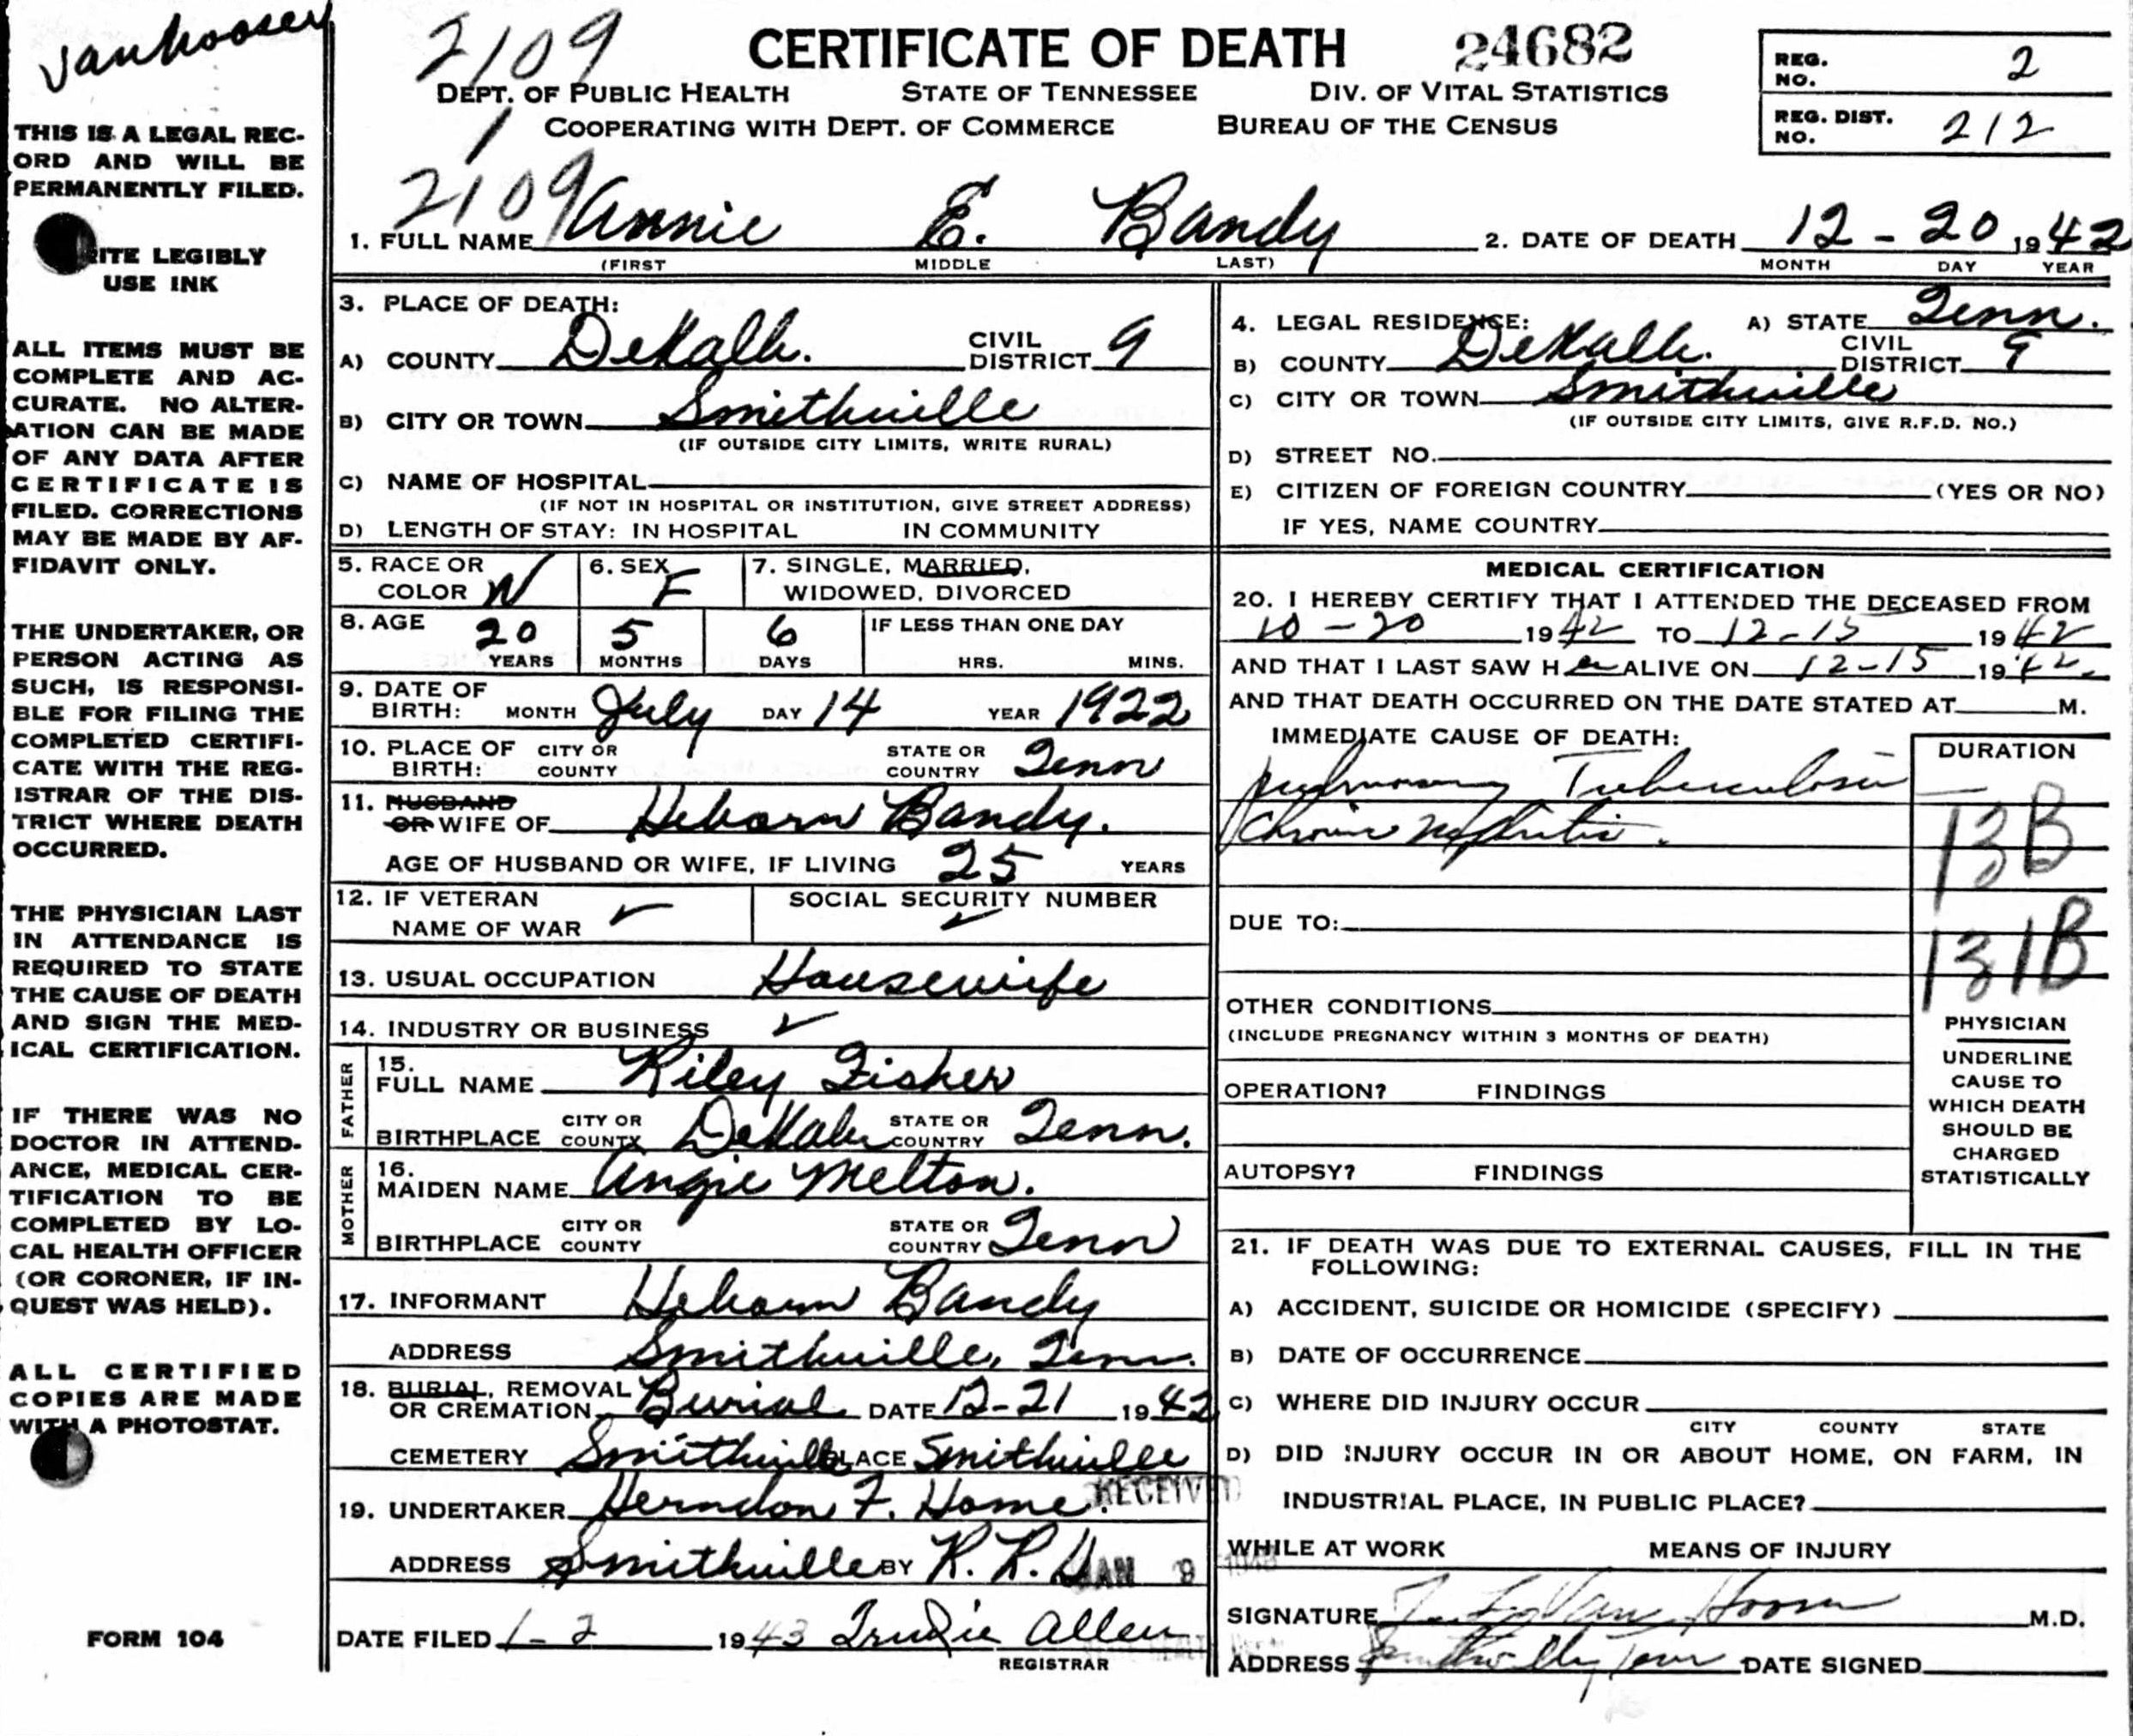 vanhooser
2109
CERTIFICATE OF DEATH 24682
DEPT. OF PUBLIC HEALTH STATE OF TENNESSEE DIV. OF VITAL STATISTICS
1 COOPERATING WITH DEPT. OF COMMERCE BUREAU OF THE CENSUS
REG. NO. 2
REG. DIST. NO. 212
THIS IS A LEGAL REC-
ORD AND WILL BE
PERMANENTLY FILED.
ITE LEGIBLY
USE INK
ALL ITEMS MUST BE
COMPLETE AND AC-
CURATE. NO ALTER-
ATION CAN BE MADE
OF ANY DATA AFTER
CERTIFICATE IS
FILED. CORRECTIONS
MAY BE MADE BY AF-
FIDAVIT ONLY.
THE UNDERTAKER, OR
PERSON ACTING AS
SUCH, IS RESPONSI-
BLE FOR FILING THE
COMPLETED CERTIFI-
CATE WITH THE REG-
ISTRAR OF THE DIS-
TRICT WHERE DEATH
OCCURRED.
THE PHYSICIAN LAST
IN ATTENDANCE IS
REQUIRED TO STATE
THE CAUSE OF DEATH
AND SIGN THE MED-
ICAL CERTIFICATION.
IF THERE WAS NO
DOCTOR IN ATTEND-
ANCE, MEDICAL CER-
TIFICATION TO BE
COMPLETED BY LO-
CAL HEALTH OFFICER
(OR CORONER, IF IN-
QUEST WAS HELD).
ALL CERTIFIED
COPIES ARE MADE
WITH A PHOTOSTAT.
FORM 104
2109
1. FULL NAME Annie E. Bandy 2. DATE OF DEATH 12 - 20 1942
(FIRST MIDDLE LAST) MONTH DAY YEAR
3. PLACE OF DEATH:
A) COUNTY DeKalb. CIVIL DISTRICT 9
B) CITY OR TOWN Smithville
(IF OUTSIDE CITY LIMITS, WRITE RURAL)
C) NAME OF HOSPITAL
(IF NOT IN HOSPITAL OR INSTITUTION, GIVE STREET ADDRESS)
D) LENGTH OF STAY: IN HOSPITAL IN COMMUNITY
4. LEGAL RESIDENCE: A) STATE Tenn.
B) COUNTY DeKalb. CIVIL DISTRICT 9
C) CITY OR TOWN Smithville
(IF OUTSIDE CITY LIMITS, GIVE R.F.D. NO.)
D) STREET NO.
E) CITIZEN OF FOREIGN COUNTRY (YES OR NO)
IF YES, NAME COUNTRY
5. RACE OR COLOR W 6. SEX F 7. SINGLE, MARRIED,
WIDOWED, DIVORCED
8. AGE 20 5 6 IF LESS THAN ONE DAY
YEARS MONTHS DAYS HRS. MINS.
9. DATE OF BIRTH: MONTH July DAY 14 YEAR 1922
10. PLACE OF BIRTH: CITY OR COUNTY STATE OR COUNTRY Tenn
11. HUSBAND
OR WIFE OF Heborn Bandy.
AGE OF HUSBAND OR WIFE, IF LIVING 25 YEARS
12. IF VETERAN NAME OF WAR ✓ SOCIAL SECURITY NUMBER ✓
13. USUAL OCCUPATION Housewife
14. INDUSTRY OR BUSINESS ✓
FATHER
15. FULL NAME Riley Fisher
BIRTHPLACE CITY OR COUNTY DeKalb STATE OR COUNTRY Tenn.
MOTHER
16. MAIDEN NAME Angie Melton.
BIRTHPLACE CITY OR COUNTY STATE OR COUNTRY Tenn
17. INFORMANT Heborn Bandy
ADDRESS Smithville, Tenn.
18. BURIAL, REMOVAL OR CREMATION Burial DATE 12-21 1942
CEMETERY Smithville PLACE Smithville
19. UNDERTAKER Herndon F. Home.
RECEIVED
ADDRESS Smithville BY R. R. H
JAN 9 1943
DATE FILED 1-2 1943 Trudie Allen
REGISTRAR
MEDICAL CERTIFICATION
20. I HEREBY CERTIFY THAT I ATTENDED THE DECEASED FROM
10-20 1942 TO 12-15 1942
AND THAT I LAST SAW Her ALIVE ON 12-15 1942.
AND THAT DEATH OCCURRED ON THE DATE STATED AT M.
IMMEDIATE CAUSE OF DEATH: DURATION
pulmonary Tuberculosis
Chronic Nephritis.
13B
DUE TO:
131B
OTHER CONDITIONS
(INCLUDE PREGNANCY WITHIN 3 MONTHS OF DEATH)
OPERATION? FINDINGS
AUTOPSY? FINDINGS
PHYSICIAN
UNDERLINE
CAUSE TO
WHICH DEATH
SHOULD BE
CHARGED
STATISTICALLY
21. IF DEATH WAS DUE TO EXTERNAL CAUSES, FILL IN THE
FOLLOWING:
A) ACCIDENT, SUICIDE OR HOMICIDE (SPECIFY)
B) DATE OF OCCURRENCE
C) WHERE DID INJURY OCCUR
CITY COUNTY STATE
D) DID INJURY OCCUR IN OR ABOUT HOME, ON FARM, IN
INDUSTRIAL PLACE, IN PUBLIC PLACE?
WHILE AT WORK MEANS OF INJURY
SIGNATURE Van Hooser M.D.
ADDRESS Smithville, Tenn DATE SIGNED